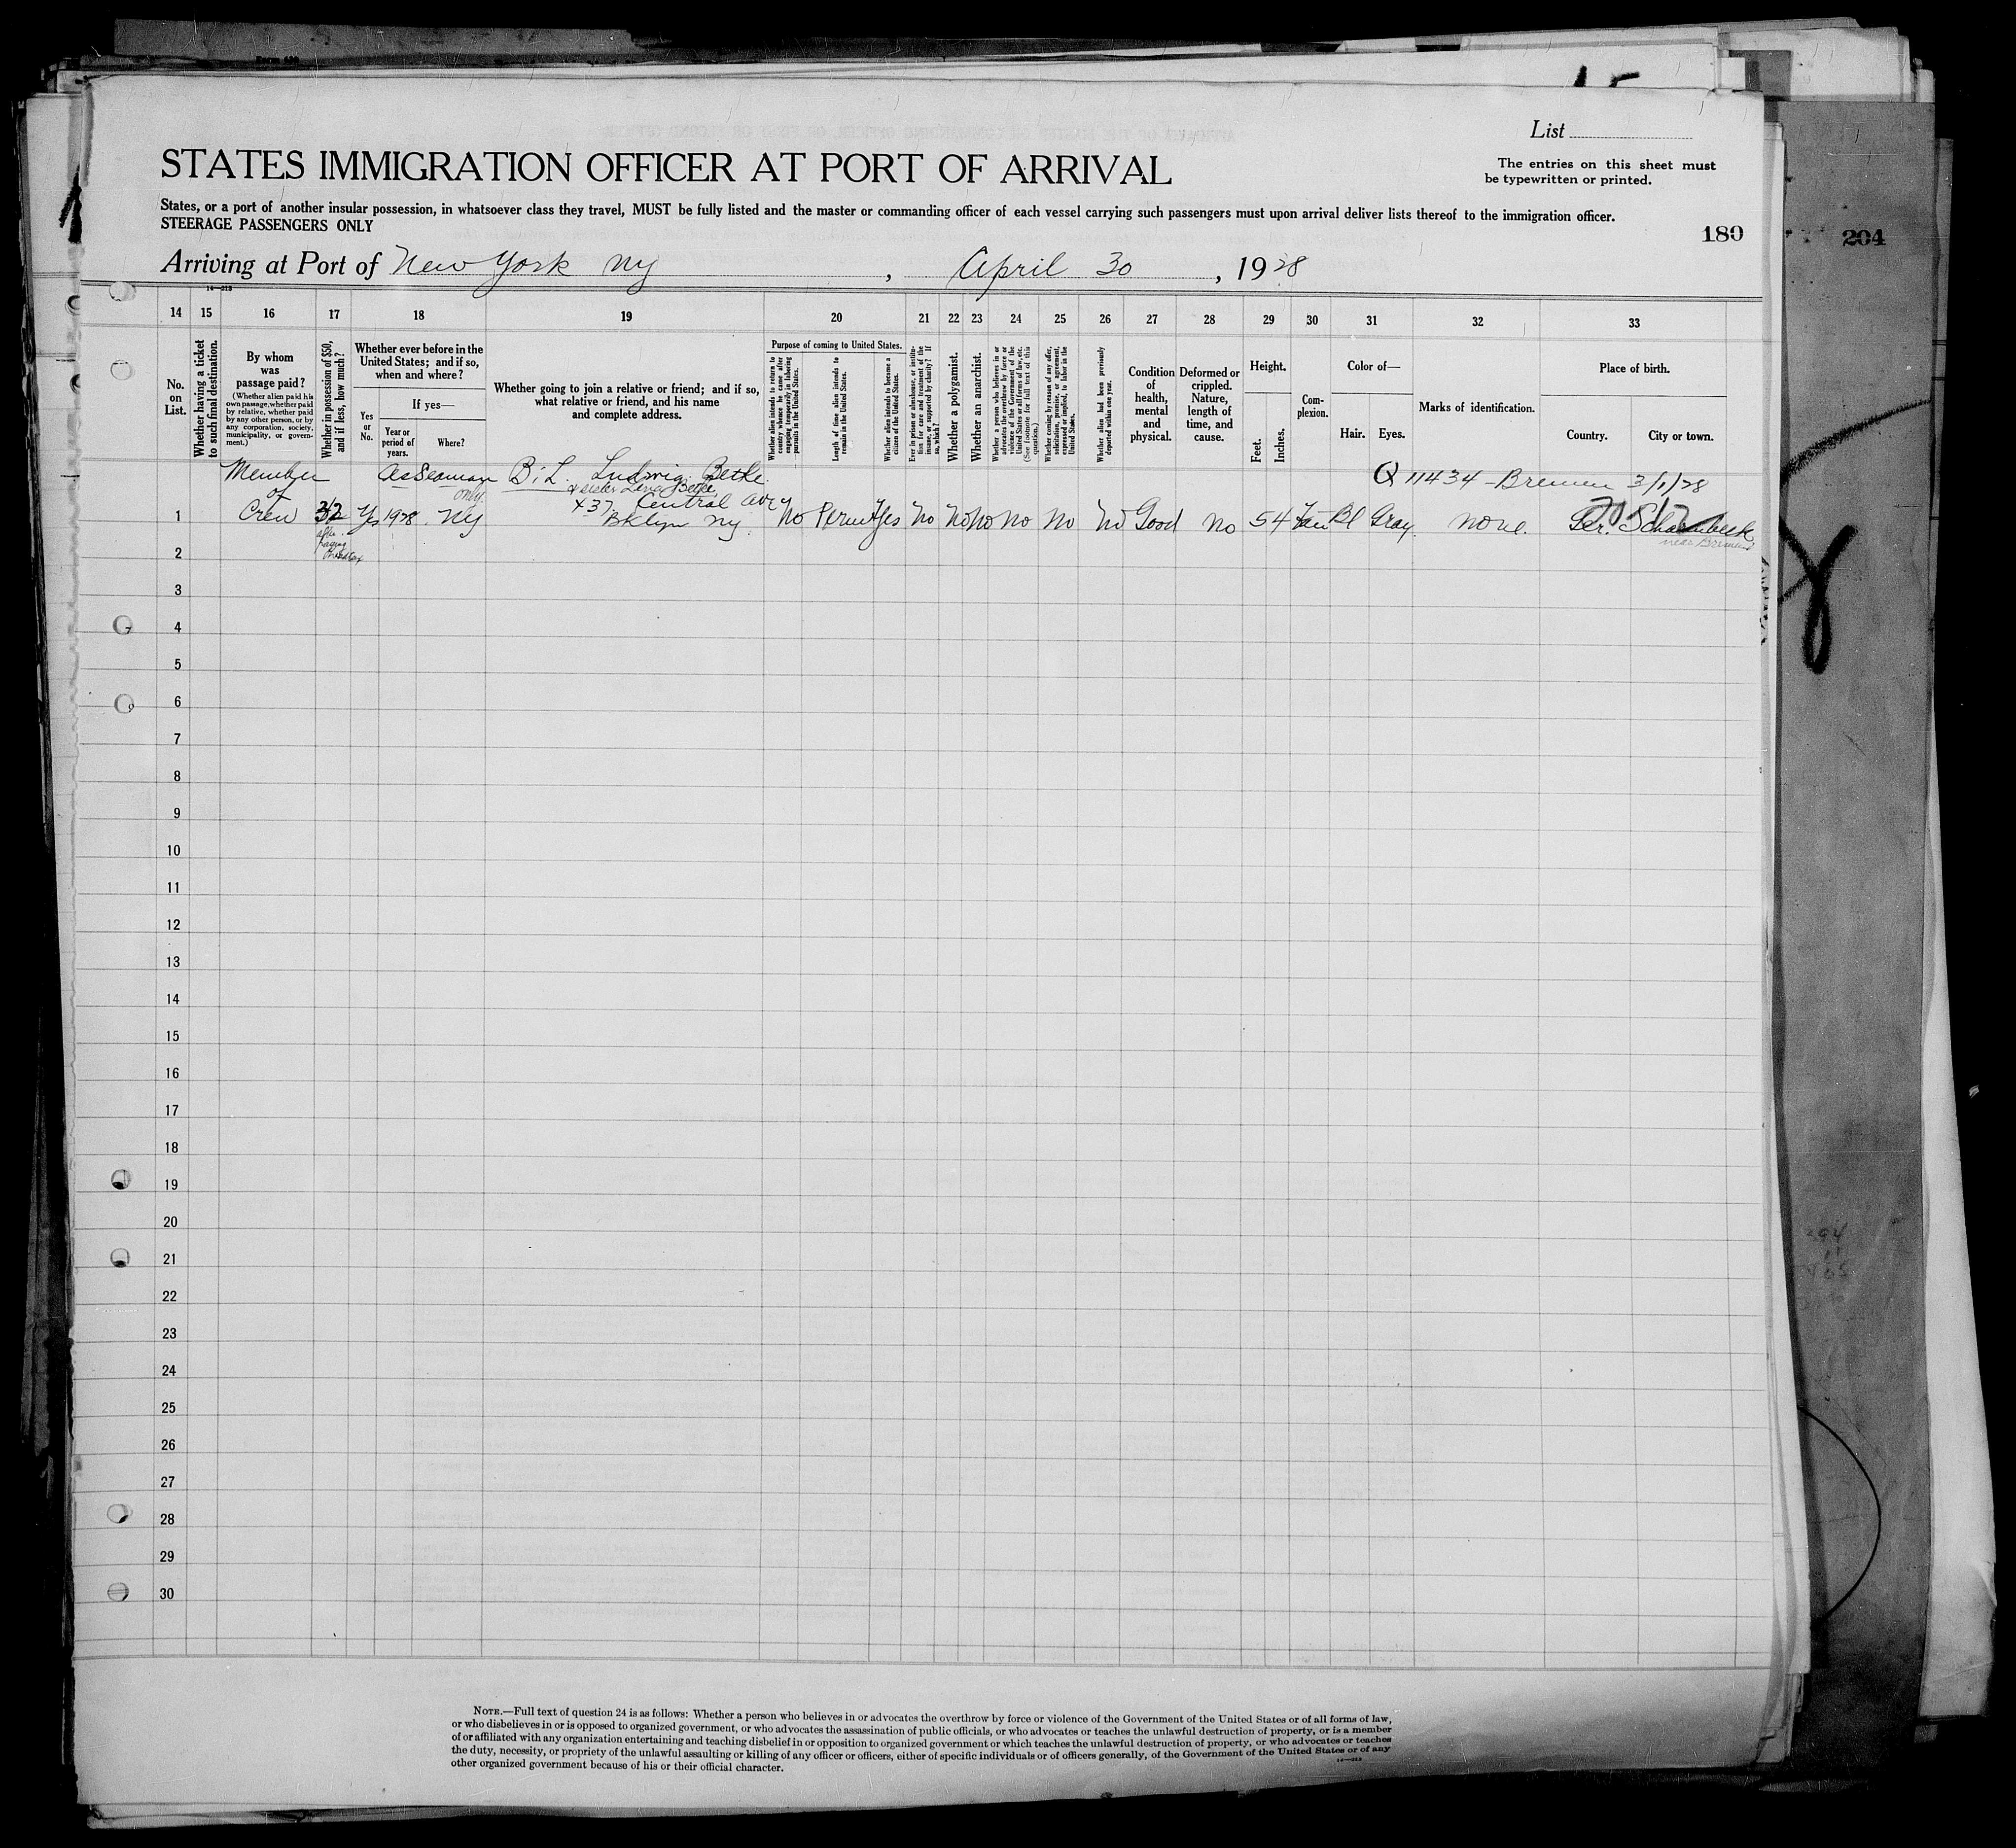 List
STATES IMMIGRATION OFFICER AT PORT OF ARRIVAL
The entries on this sheet must
be typewritten or printed.
States, or a port of another insular possession, in whatsoever class they travel, MUST be fully listed and the master or commanding officer of each vessel carrying such passengers must upon arrival deliver lists thereof to the immigration officer.
STEERAGE PASSENGERS ONLY
180
204
Arriving at Port of New York NY, April 30, 1928
14 15 16 17 18 19 20 21 22 23 24 25 26 27 28 29 30 31 32 33
No. on List.
Whether having a ticket to such final destination.
By whom was passage paid?
(Whether alien paid his own passage, whether paid by relative, whether paid by any other person, or by any corporation, society, municipality, or government.)
Whether in possession of $50, and if less, how much?
Whether ever before in the United States; and if so, when and where?
Yes or No.
If yes—
Year or period of years.
Where?
Whether going to join a relative or friend; and if so, what relative or friend, and his name and complete address.
Purpose of coming to United States.
Whether alien intends to return to country whence he came after engaging temporarily in laboring pursuits in the United States.
Length of time alien intends to remain in the United States.
Whether alien intends to become a citizen of the United States.
Ever in prison or almshouse, or institution for care and treatment of the insane, or supported by charity? If so, which?
Whether a polygamist.
Whether an anarchist.
Whether a person who believes in or advocates the overthrow by force or violence of the Government of the United States or all forms of law, etc. (See footnote for full text of this question.)
Whether coming by reason of any offer, solicitation, promise, or agreement, expressed or implied, to labor in the United States.
Whether alien had been previously deported within one year.
Condition of health, mental and physical.
Deformed or crippled. Nature, length of time, and cause.
Height.
Feet.
Inches.
Complexion.
Color of—
Hair.
Eyes.
Marks of identification.
Place of birth.
Country.
City or town.
Member as Seaman B.i.L. Ludwig Betke Q 11434 - Bremen 3/1/28
of only & sister Betke
1 Crew 32 Yes 1928 NY 437 Central Ave Bklyn NY. No Permt Yes No No No No No No Good No 5 4 Bl Gray none. Ger.
after paying headtax near Bremen
2
3
4
5
6
7
8
9
10
11
12
13
14
15
16
17
18
19
20
21
22
23
24
25
26
27
28
29
30
NOTE.—Full text of question 24 is as follows: Whether a person who believes in or advocates the overthrow by force or violence of the Government of the United States or of all forms of law,
or who disbelieves in or is opposed to organized government, or who advocates the assassination of public officials, or who advocates or teaches the unlawful destruction of property, or is a member
of or affiliated with any organization entertaining and teaching disbelief in or opposition to organized government or which teaches the unlawful destruction of property, or who advocates or teaches
the duty, necessity, or propriety of the unlawful assaulting or killing of any officer or officers, either of specific individuals or of officers generally, of the Government of the United States or of any
other organized government because of his or their official character.